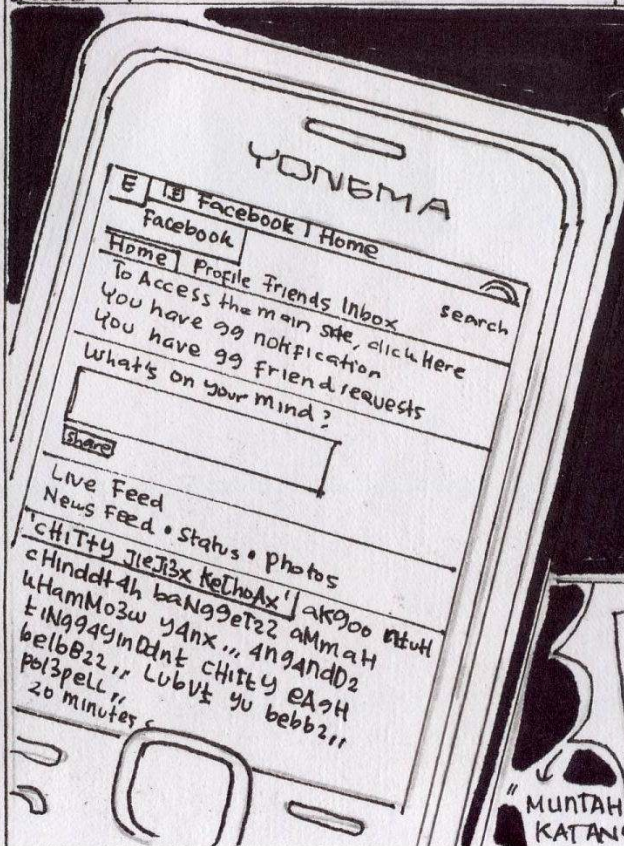 YONEMA
E E Facebook | Home
Facebook
Home Profile Friends Inbox search
To Access the main site, click Here
You have 99 notification
You have 99 friend requests
What's on your mind?
Share
Live Feed
News Feed • Status • Photos
'cHiT+y JieJi3x KeChoAx' aKgoo ntuH
cHinddt4h baNg9eT22 aMmaH
kHamMo3w y4nx ,,, 4n94ndD2
tiNg94yinDdnt cHitty eAgH
belbB22 ,, Lubvt yu bebb2 ,,
pol3peLL ,,
20 minutes
"MUNTAH
KATAN